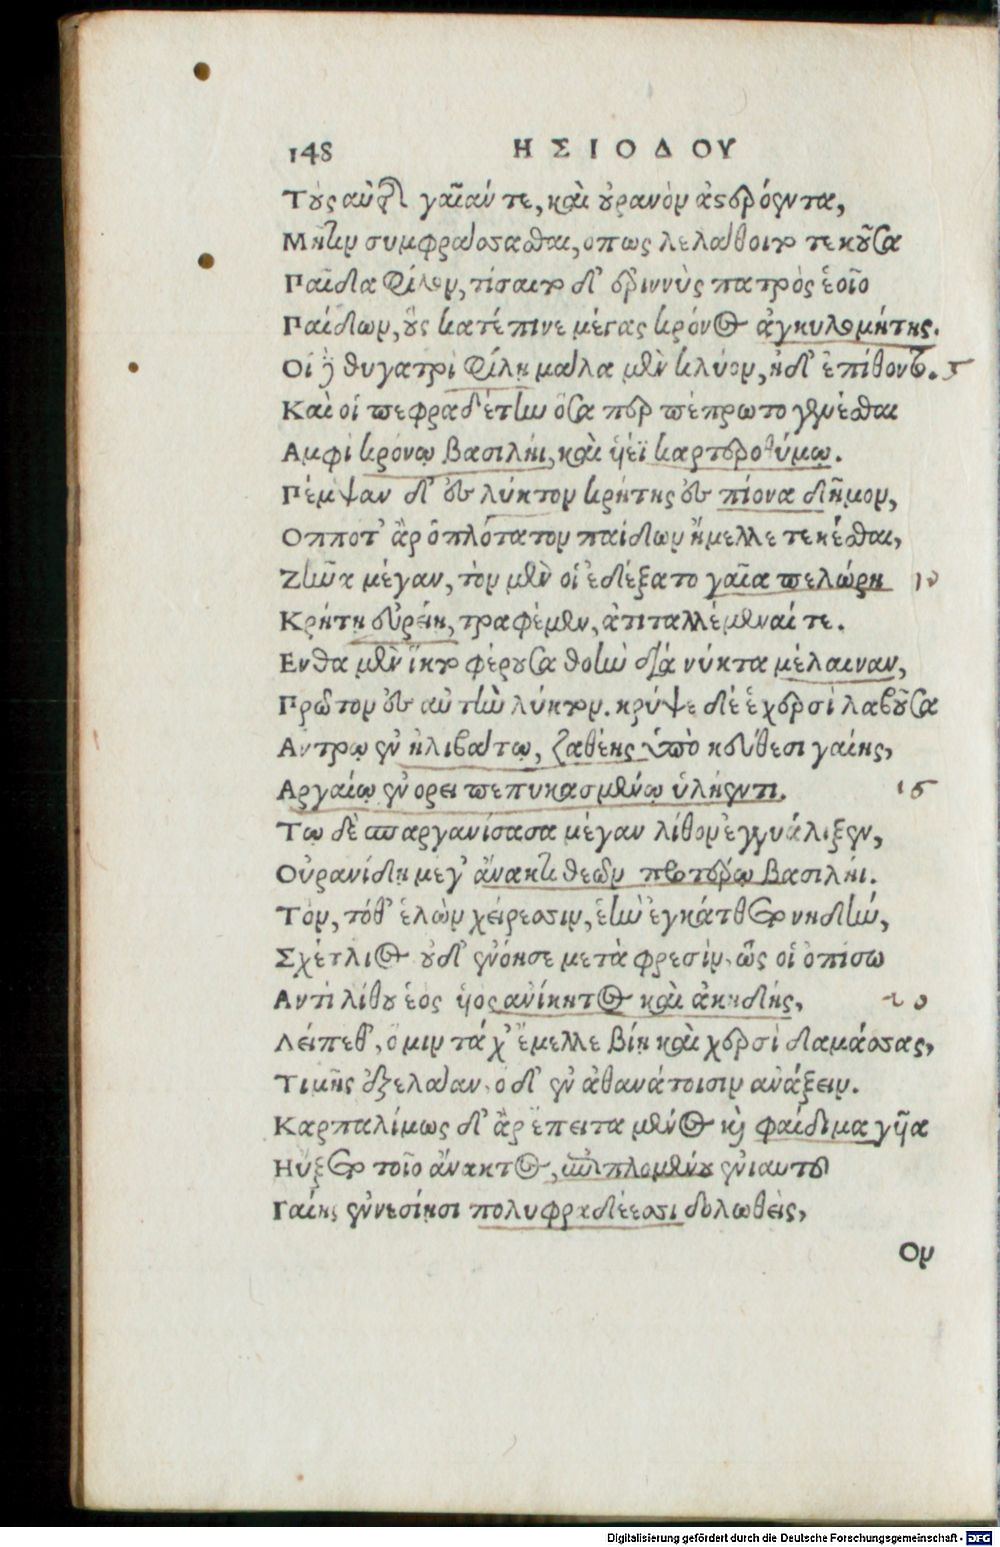 148 ΗΣΙΟΔΟΥ
Τοὺς αὐτῆς γαῖάν τε, καὶ οὐρανὸν ἀστερόεντα,
Μῆτιν συμφράσσασθαι, ὅπως λελάθοιτο τεκοῦσα
Παῖδα φίλον, τίσαιτο δ' ἐριννὺς πατρὸς ἑοῖο
Παίδων, οὓς κατέπινε μέγας κρόνος ἀγκυλομήτης.
Οἱ δὲ θυγατρὶ φίλῃ μάλα μὲν κλύον, ἠδ' ἐπίθοντο. 5
Καὶ οἱ πεφραδέτην ὅσα περ πέπρωτο γενέσθαι
Αμφὶ κρόνῳ βασιλῆϊ, καὶ υἱέϊ καρτεροθύμῳ.
Πέμψαν δ' ἐς λύκτον κρήτης ἐς πίονα δῆμον,
Οππότ' ἂρ ὁπλότατον παίδων ἤμελλε τεκέσθαι,
Ζῆνα μέγαν, τὸν μὲν οἱ ἐδέξατο γαῖα πελώρη 10
Κρήτῃ εὐρείῃ, τραφέμεν, ἀτιταλλέμεναί τε.
Ενθα μὲν ἷκτο φέρουσα θοὴν διὰ νύκτα μέλαιναν,
Πρῶτον ἐς αὐτὴν λύκτον. κρύψε δέ ἑ χερσὶ λαβοῦσα
Αντρῳ ἐν ἠλιβάτῳ, ζαθέης ὑπὸ κεύθεσι γαίης,
Αργαίῳ ἐν ὄρει πεπυκασμένῳ ὑλήεντι. 15
Τῳ δὲ σπαργανίσασα μέγαν λίθον ἐγγυάλιξεν,
Οὐρανίδῃ μεγ' ἄνακτι θεῶν προτέρῳ βασιλῆϊ.
Τὸν, τόθ' ἑλὼν χείρεσσιν, ἑὴν ἐγκάτθετο νηδὺν,
Σχέτλιος οὐδ' ἐνόησε μετὰ φρεσὶν, ὥς οἱ ὀπίσσω
Αντὶ λίθου ἑὸς υἱὸς ἀνίκητος καὶ ἀκηδὴς, 20
Λείπεθ', ὅ μιν τάχ' ἔμελλε βίῃ καὶ χερσὶ δαμάσσας,
Τιμῆς ἐξελάαν, ὁ δ' ἐν ἀθανάτοισιν ἀνάξειν.
Καρπαλίμως δ' ἂρ ἔπειτα μένος καὶ φαίδιμα γυῖα
Ηὔξετο τοῖο ἄνακτος, ἐπιπλομένου ἐνιαυτοῦ
Γαίης ἐννεσίῃσι πολυφραδέεσσι δολωθεὶς,
Ον
Digitalisierung gefördert durch die Deutsche Forschungsgemeinschaft - DFG